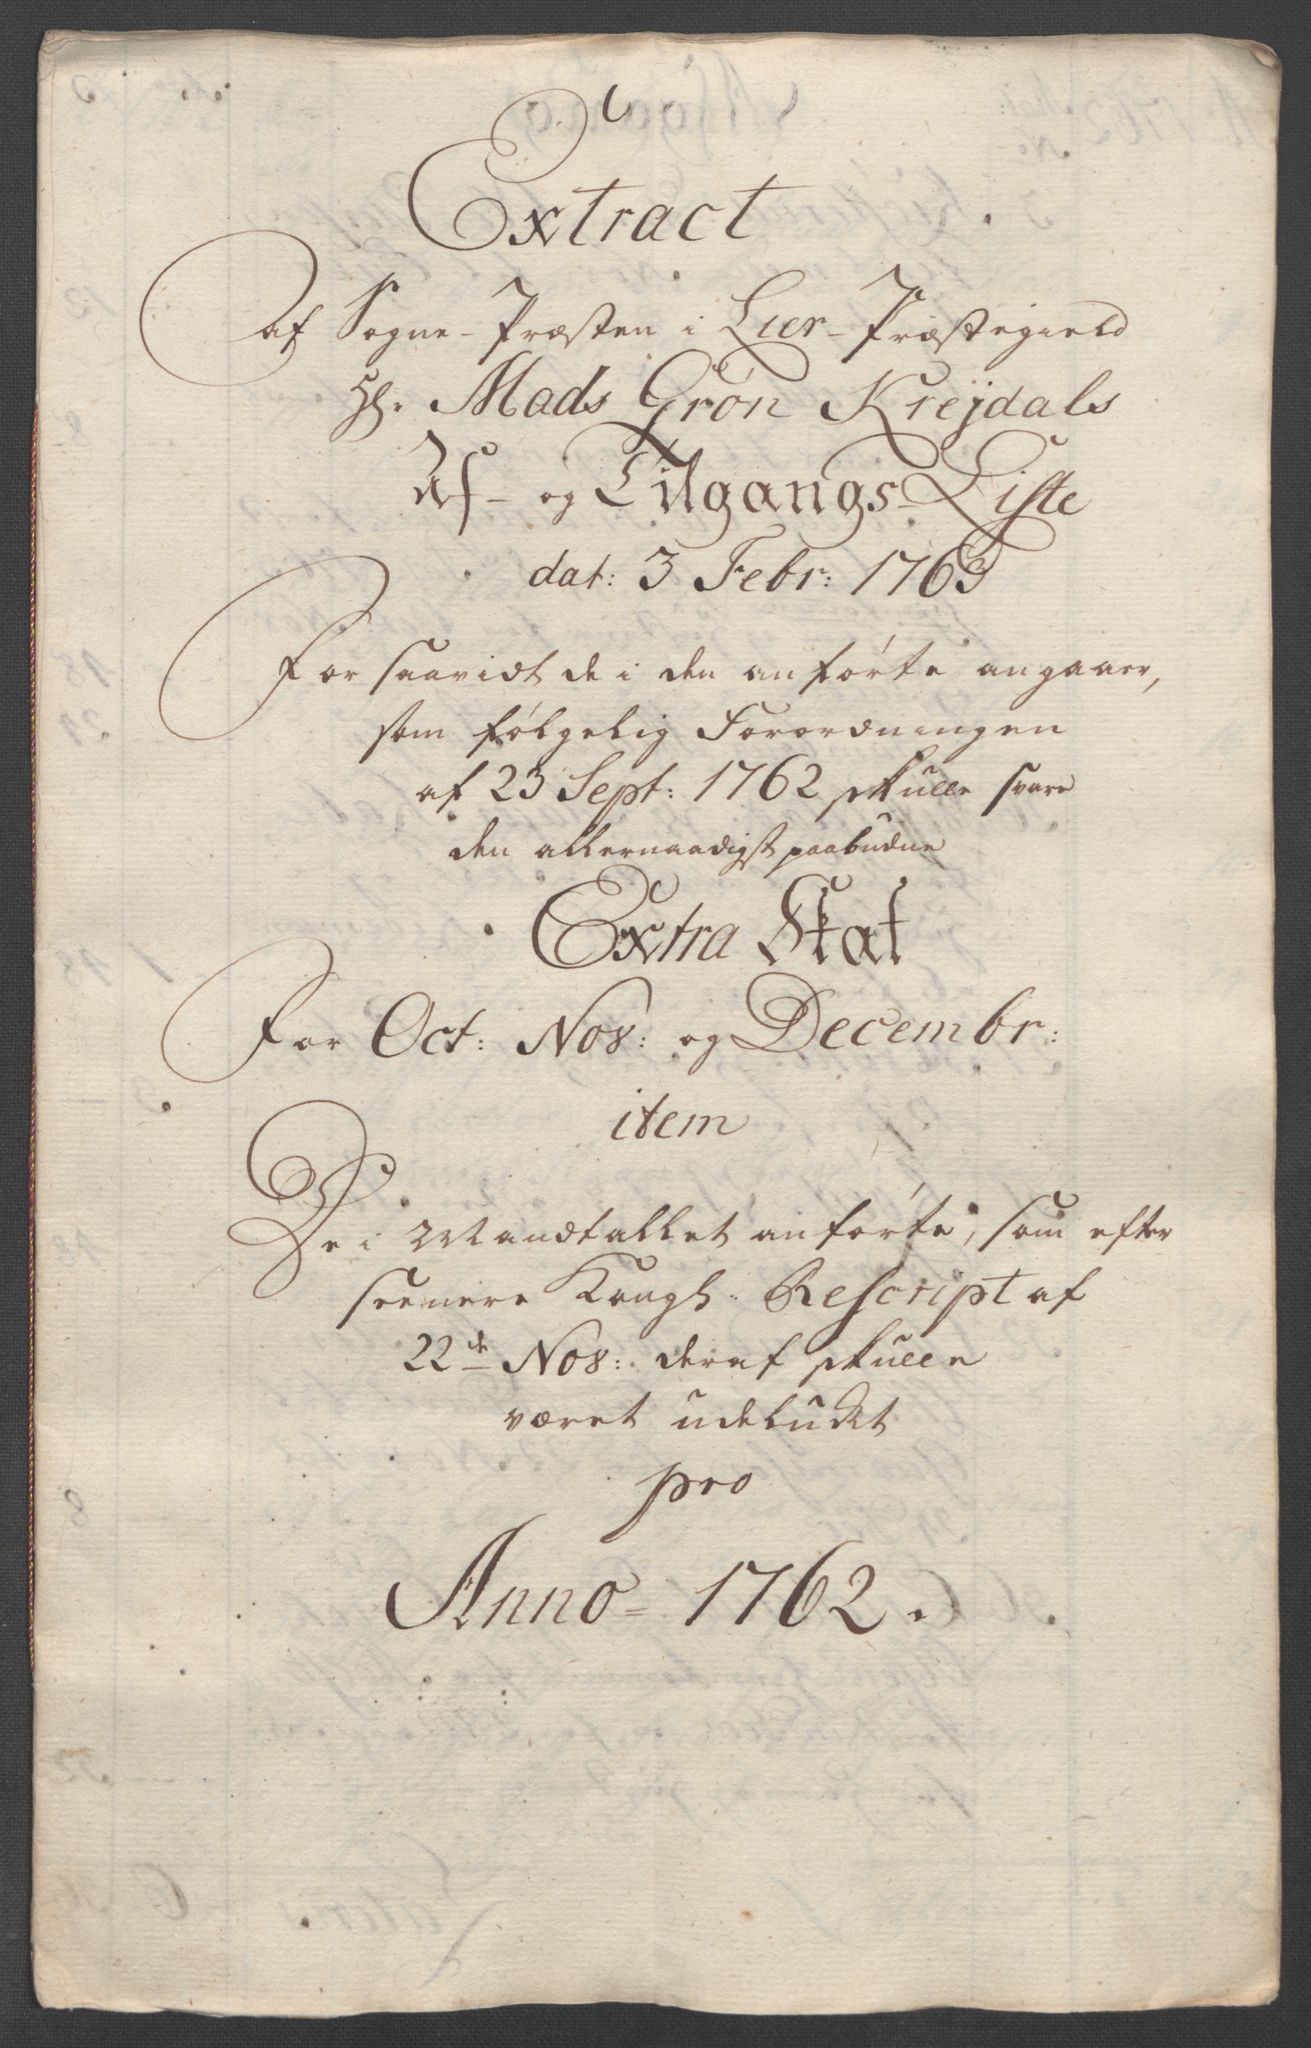 Extract
Af Sogne-Præsten i Lier-Præstegield
Hr. Mads Grøn Krejdals
Af- og Tilgangs-Liste
dat: 3 Febr: 1763
For saavidt de i den anførte angaaer,
som følgelig Forordningen
af 23 Sept: 1762 skulle svare
den allernaadigst paabudne
Extra Skat
For Oct: Nov: og Decembr:
item
De i Mandtallet anførte, som efter
seenere Kongl. Rescript af
22de Nov: deraf skulle
været udeludt
pro
Anno = 1762.